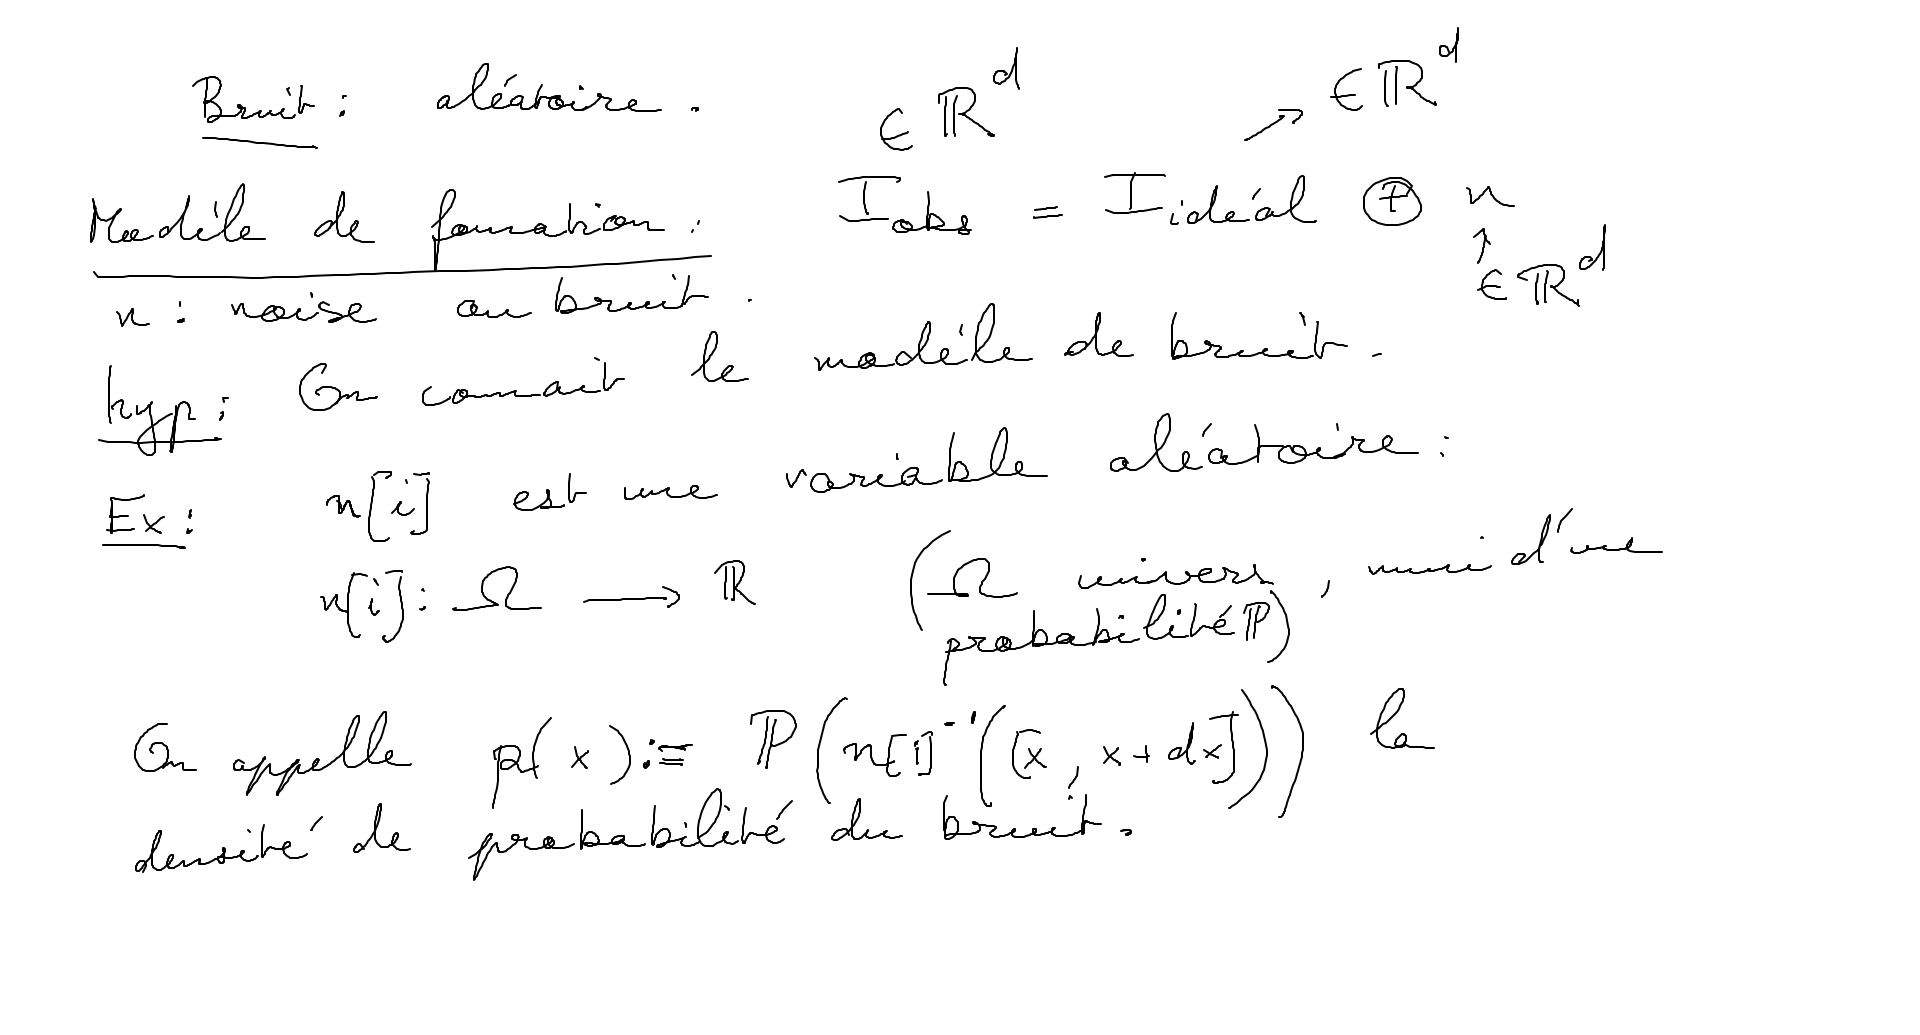 Bruit : aléatoire .
∈ ℝ^d
↗ ∈ ℝ^d
Modèle de formation : I_obs = I_idéal ⊕ n
↑
∈ ℝ^d
n : noise ou bruit .
hyp : On connait le modèle de bruit .
Ex : n[i] est une variable aléatoire :
n[i] : Ω ⟶ ℝ (Ω univers , muni d'une
probabilité ℙ)
On appelle p(x) := ℙ(n[i]^-1([x , x+dx])) la
densité de probabilité du bruit .